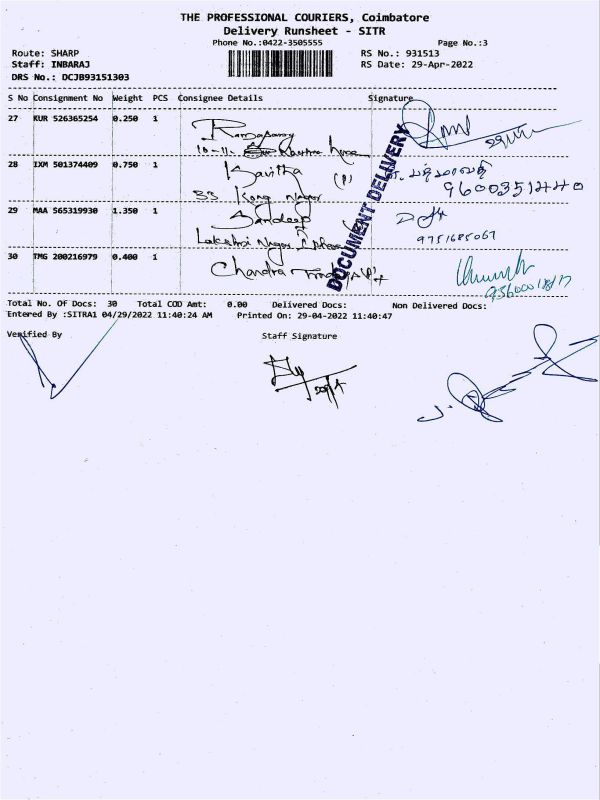 THE PROFESSIONAL COURIERS, Coimbatore
Delivery Runsheet - SITR
Phone No.:0422-3505555 Page No.:3
Route: SHARP RS No.: 931513
Staff: INBARAJ RS Date: 29-Apr-2022
DRS No.: DCJB93151303
S No Consignment No Weight PCS Consignee Details Signature
27 KUR 526365254 0.250 1 Ramasamy
10-11.
28 IXM 501374409 0.750 1 Kavitha (P)
33 Kong Nagar 9600351440
29 MAA 565319930 1.350 1 Sandeep
Lakshmi Nagar 9751685067
30 TMG 200216979 0.400 1 Chandra
DOCUMENT DELIVERY
Total No. Of Docs: 30 Total COD Amt: 0.00 Delivered Docs: Non Delivered Docs:
Entered By :SITRA1 04/29/2022 11:40:24 AM Printed On: 29-04-2022 11:40:47
Verified By Staff Signature